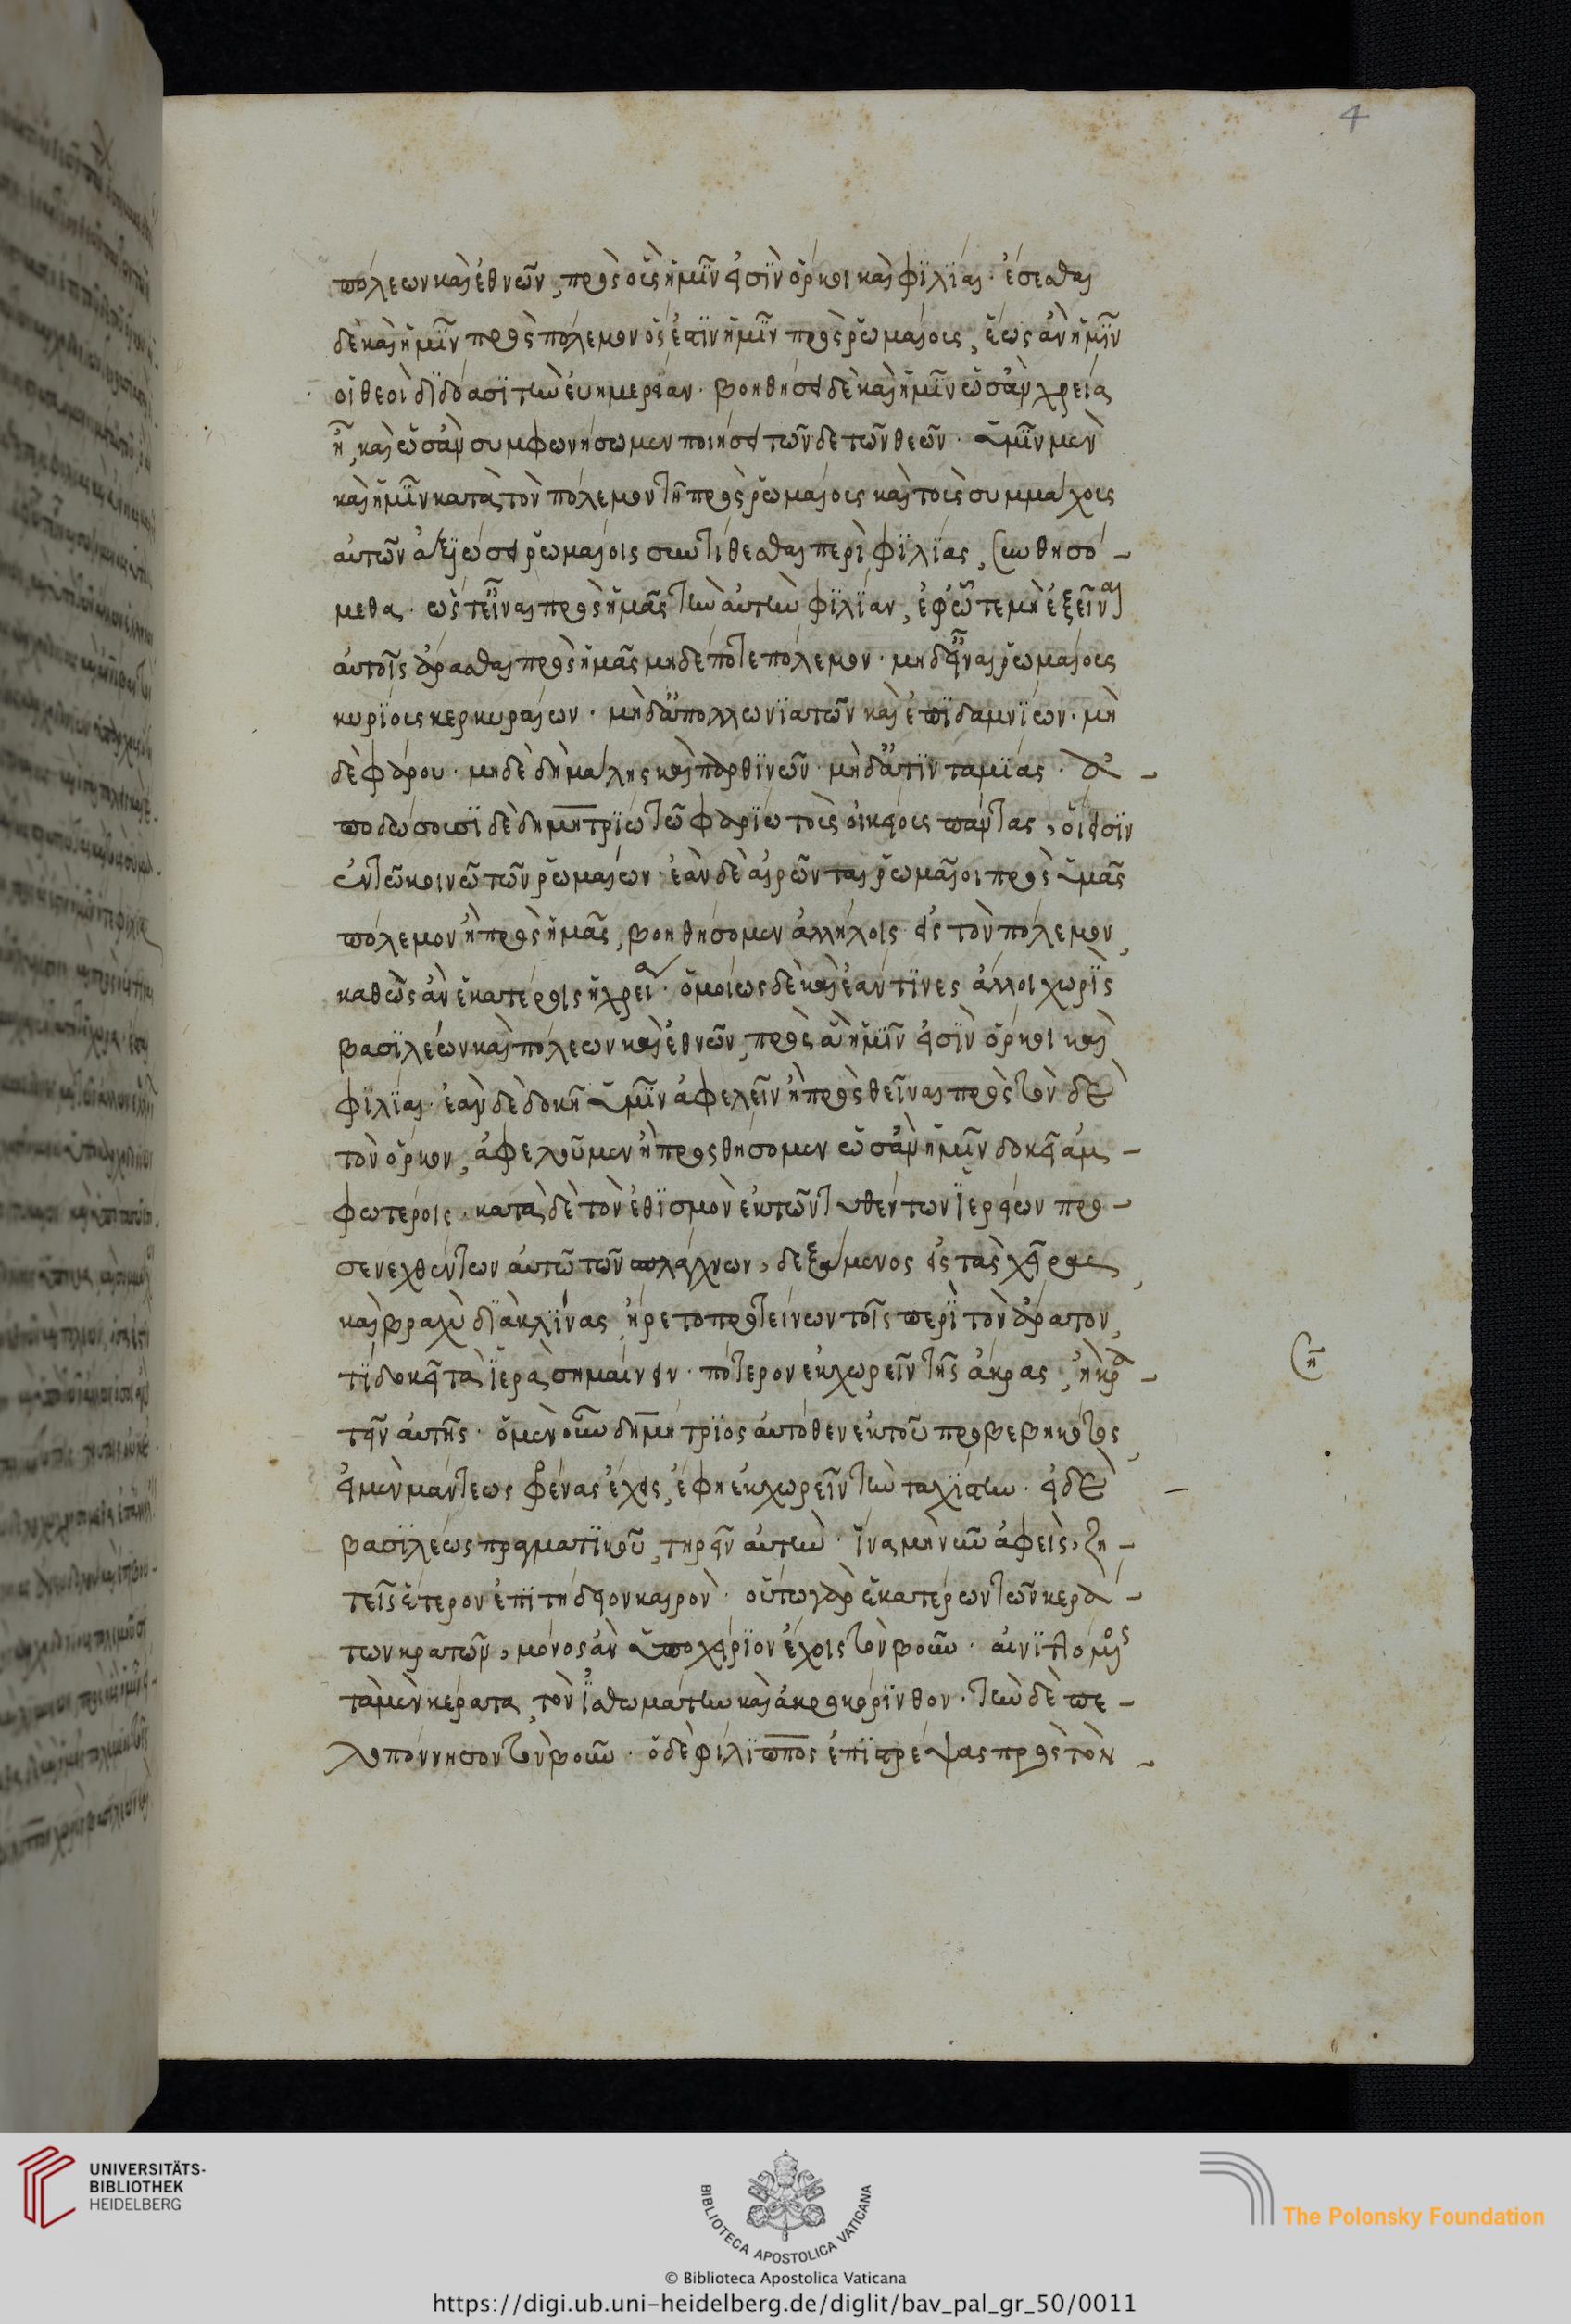 4
πόλεων καὶ ἐθνῶν, πρὸς οὓς ἡμῖν εἰσὶν ὅρκοι καὶ φιλίαι. ἔσεσθαι
δὲ καὶ ἡμῖν πρὸς πόλεμον ὅς ἐστιν ἡμῖν πρὸς ῥωμαίους, ἕως ἂν ἡμῖν
οἱ θεοὶ διδόασι τὴν εὐημερίαν. βοηθήσει δὲ καὶ ἡμῖν ὡς ἂν χρεία
ἦ, καὶ ὡς ἂν συμφωνήσωμεν ποιησει τῶν δὲ τῶν θεῶν. ὑμῖν μὲν
καὶ ἡμῖν κατὰ τὸν πόλεμον τῆ πρὸς ῥωμαίους καὶ τοὺς συμμάχους
αὐτῶν ἀξιώσει ῥωμαίοις συντίθεσθαι περὶ φιλίας, συνθησό-
μεθα. ὥστ' εἶναι πρὸς ἡμᾶς τὴν αὐτὴν φιλίαν, ἐφ' ὧτε μὴ ἐξεῖναι
αὐτοῖς ἄρασθαι πρὸς ἡμᾶς μηδέποτε πόλεμον. μηδ' εἶναι ῥωμαίους
κυρίους κερκυραίων. μηδ' ἀπολλωνιατῶν καὶ ἐπιδαμνίων. μη
δὲ φάρου. μηδὲ διμάλης καὶ παρθίνων. μηδ' ἀτιντανίας. ἀ-
ποδώσουσι δὲ δημητρίω τῶ φαρίω τοὺς οἰκείους πάντας, οἵ εἰσιν
ἐν τῶ κοινῶ τῶν ῥωμαίων. ἐὰν δὲ αἱρῶνται ῥωμαῖοι πρὸς ὑμᾶς
πόλεμον ἢ πρὸς ἡμᾶς, βοηθήσομεν ἀλλήλοις εἰς τὸν πόλεμον,
καθὼς ἂν ἑκατέροις ἦ χρεία. ὁμοίως δὲ καὶ ἐάν τινες ἄλλοι χωρὶς
βασιλέων καὶ πόλεων καὶ ἐθνῶν, πρὸς ἃ ἡμῖν εἰσὶν ὅρκοι καὶ
φιλίαι. ἐὰν δὲ δοκῆ ὑμῖν ἀφελεῖν ἢ προσθεῖναι πρὸς τὸν δὲ
τὸν ὅρκον, ἀφελοῦμεν ἢ προσθήσομεν ὡς ἂν ἡμῖν δοκεῖ ἀμ-
φωτέροις. κατὰ δὲ τὸν ἐθισμὸν ἐκ τῶν τυθέντων ἱερείων προ-
σενεχθέντων αὐτῶ τῶν σπλάγχνων, δεξάμενος εἰς τὰς χεῖρας
καὶ βραχὺ διακλίνας, ἤρετο προτείνων τοῖς περὶ τὸν ἄρατον,
τί δοκεῖ τὰ ἱερὰ σημαίνειν. πότερον ἐκχωρεῖν τῆς ἄκρας, ἢ κρα-
τεῖν αὐτῆς. ὁ μὲν οὖν δημήτριος αὐτόθεν ἐκ τοῦ προβεβηκότος,
εἰ μὲν μάντεως φρένας ἔχεις, ἔφη ἐκχωρεῖν τὴν ταχίστην. εἰ δὲ
βασιλέως πραγματικοῦ, τηρεῖν αὐτήν. ἵνα μὴ νῦν ἀφεὶς, ζη-
τεῖς ἕτερον ἐπιτήδειον καιρόν. οὕτω γὰρ ἑκατέρων τῶν κερά-
των κρατῶν, μόνος ἂν ὑποχείριον ἔχοις τὸν βοῦν. αἰνιττόμενος
τὰ μὲν κέρατα, τὸν ἰθωμάτην καὶ ἀκροκόρινθον. τὴν δὲ πε-
λοπόννησον τὸν βοῦν. ὁ δὲ φίλιππος ἐπιστρέψας πρὸς τὸν
UNIVERSITÄTS-
BIBLIOTHEK
HEIDELBERG
BIBLIOTECA APOSTOLICA VATICANA
The Polonsky Foundation
© Biblioteca Apostolica Vaticana
https://digi.ub.uni-heidelberg.de/diglit/bav_pal_gr_50/0011